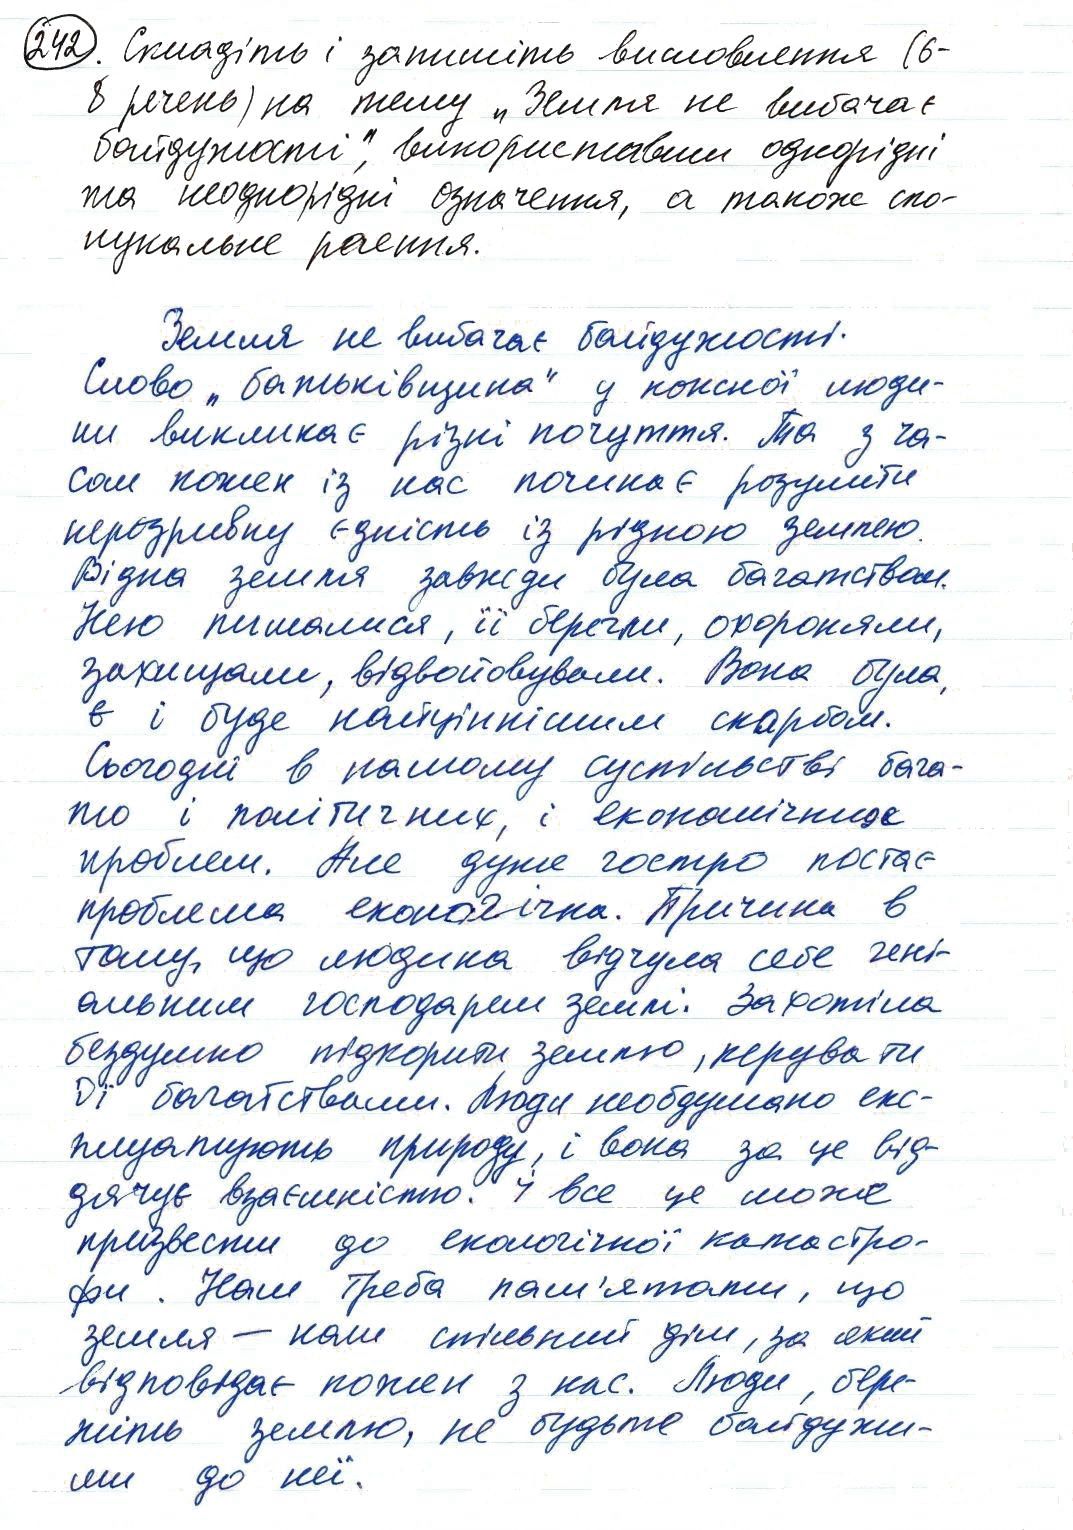 242. Складіть і запишіть висловлення (6-
8 речень) на тему „Земля не вибачає
байдужості", використавши однорідні
та неоднорідні означення, а також спо-
нукальне речення.
Земля не вибачає байдужості.
Слово „батьківщина" у кожної люди-
ни викликає різні почуття. Та з ча-
сом кожен із нас починає розуміти
нерозривну єдність із рідною землею.
Рідна земля завжди була багатством.
Нею пишалися, її берегли, охороняли,
захищали, відвойовували. Вона була,
є і буде найціннішим скарбом.
Сьогодні в нашому суспільстві бага-
то і політичних, і економічних
проблем. Але дуже гостро постає
проблема екологічна. Причина в
тому, що людина відчула себе гені-
альним господарем землі. Захотіла
бездумно підкорити землю, керувати
її багатствами. Люди необдумано екс-
плуатують природу, і вона за це від-
дячує взаємністю. І все це може
призвести до екологічної катастро-
фи. Нам треба пам'ятати, що
земля — наш спільний дім, за який
відповідає кожен з нас. Люди, бере-
жіть землю, не будьте байдужи-
ми до неї.